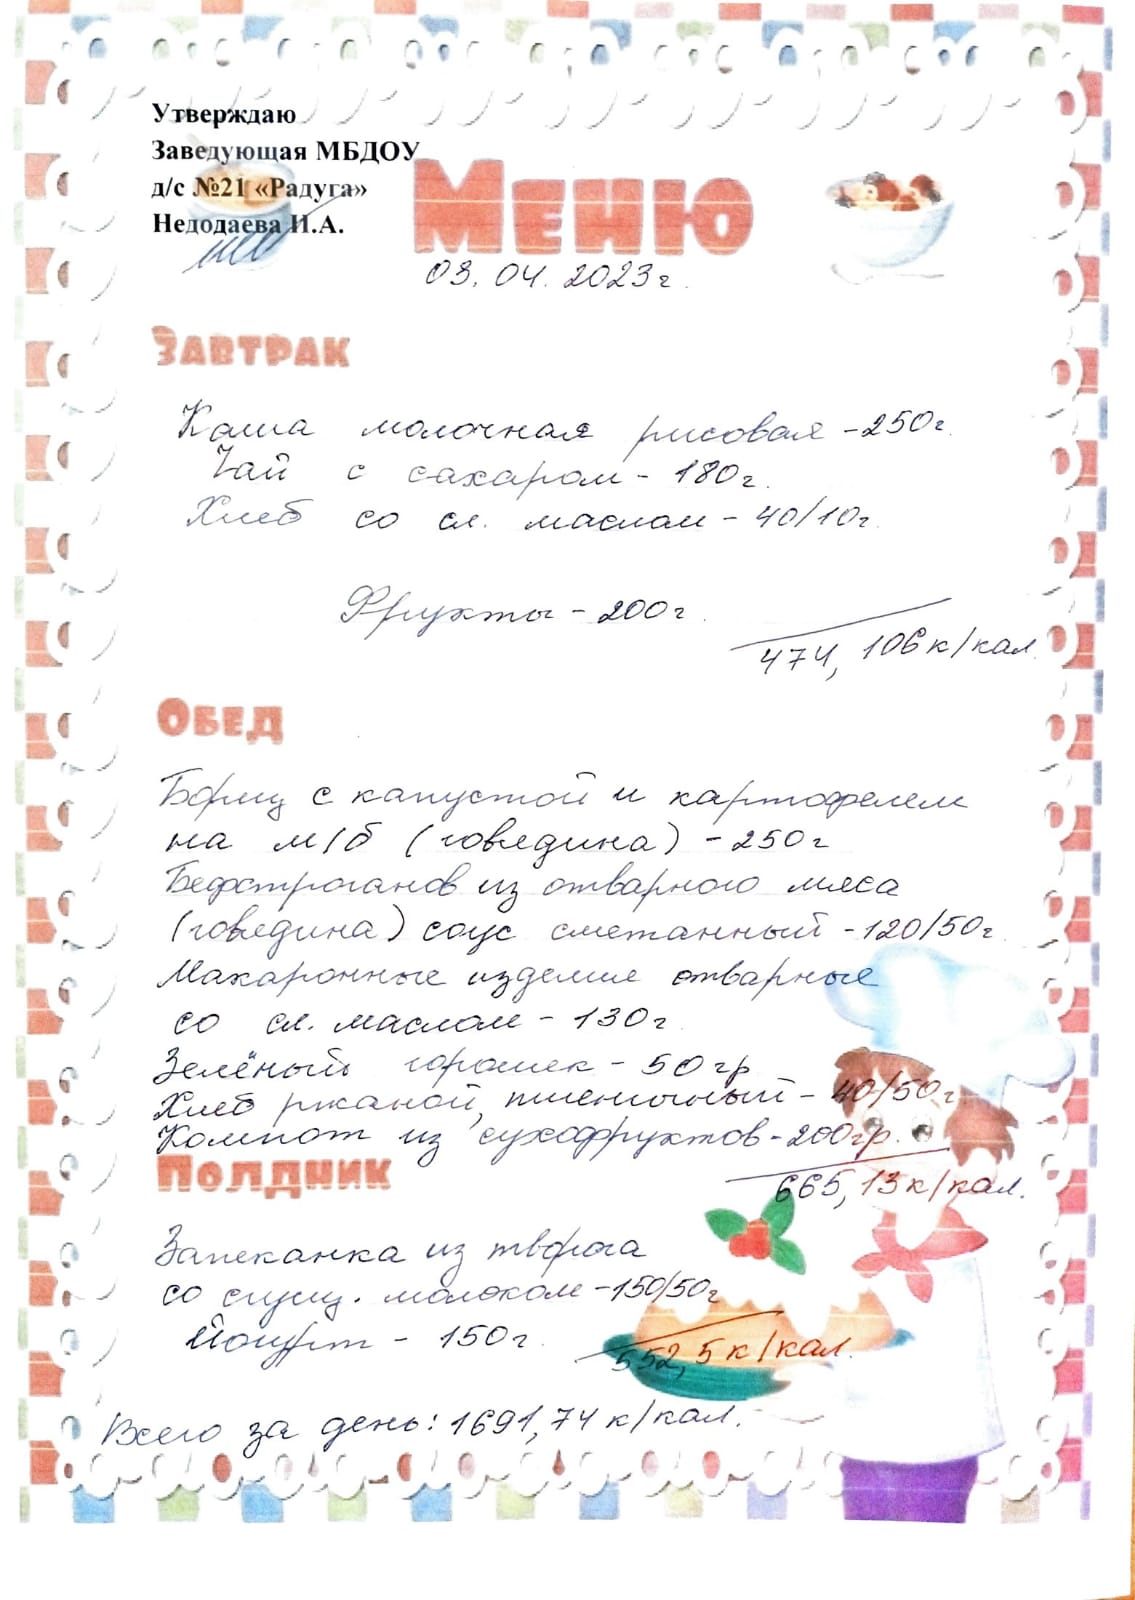 Утверждаю
Заведующая МБДОУ
д/с №21 «Радуга»
Недодаева И.А.
Меню
03.04.2023г.
Завтрак
Каша молочная рисовая - 250г.
Чай с сахаром - 180г.
Хлеб со сл. маслом - 40/10г.
Фрукты - 200г.
474,106 к/кал.
Обед
Борщ с капустой и картофелем
на м/б (говядина) - 250г
Бефстроганов из отварного мяса
(говядина) соус сметанный - 120/50г.
Макаронные изделие отварные
со сл. маслом - 130г.
Зелёный горошек - 50гр
Хлеб ржаной, пшеничный - 40/50г
Компот из сухофруктов - 200гр.
665,13 к/кал.
Полдник
Запеканка из творога
со сгущ. молоком - 150/50г
Йогурт - 150г.
552,5 к/кал.
Всего за день: 1691,74 к/кал.